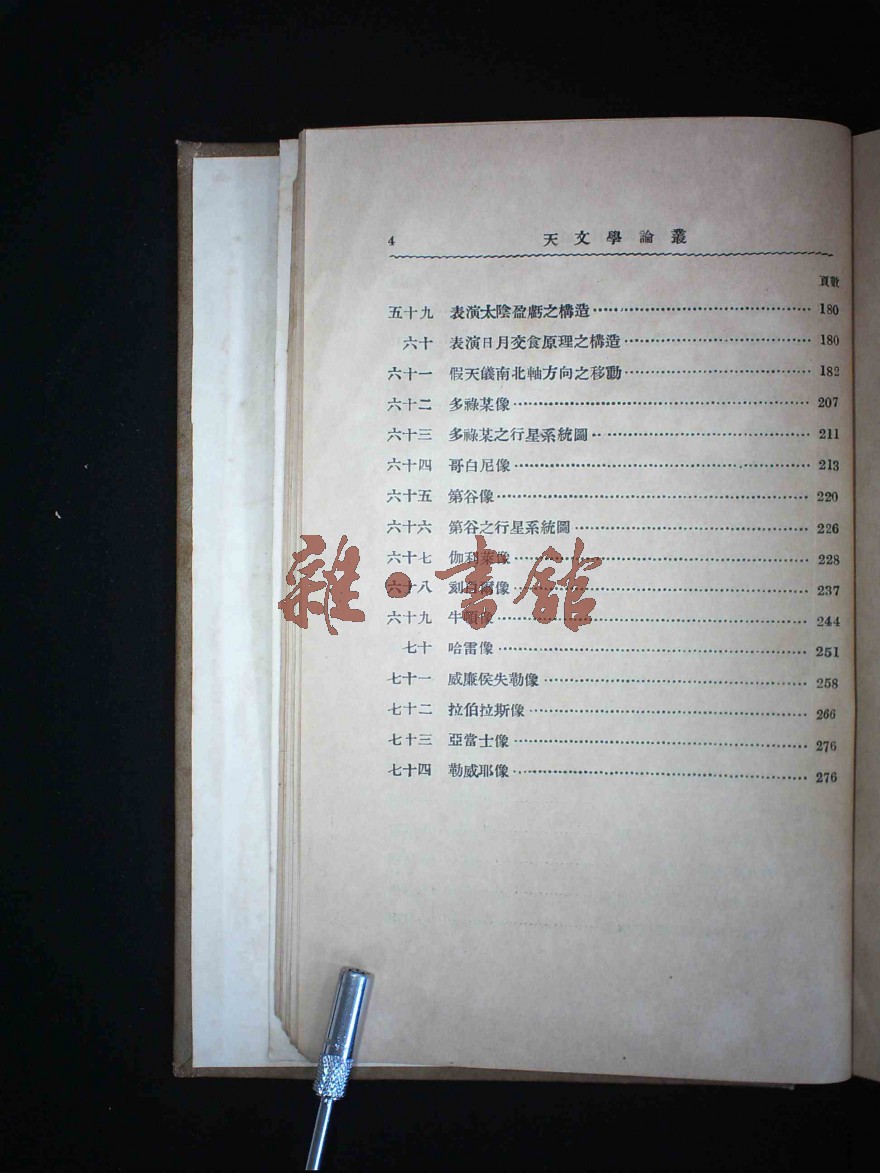 4 天文學論叢
頁數
五十九 表演太陰盈虧之構造 180
六十 表演日月交食原理之構造 180
六十一 假天儀南北軸方向之移動 182
六十二 多祿某像 207
六十三 多祿某之行星系統圖 211
六十四 哥白尼像 213
六十五 第谷像 220
六十六 第谷之行星系統圖 226
六十七 伽利萊像 228
六十八 刻白爾像 237
六十九 牛頓像 244
七十 哈雷像 251
七十一 威廉侯失勒像 258
七十二 拉伯拉斯像 266
七十三 亞當士像 276
七十四 勒威耶像 276
雜·書館